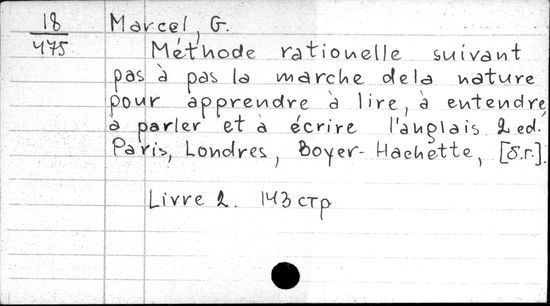 18 Marcel, G.
475 Méthode rationelle suivant
pas à pas la marche dela nature
pour apprendre à lire, à entendre,
à parler et à écrire l'anglais. 2 ed.
Paris, Londres, Boyer-Hachette, [б.г.].
Livre 2. 143 стр